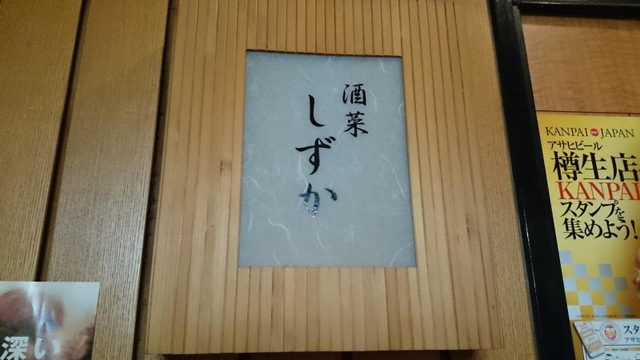 酒菜
しずか
KANPAI JAPAN
アサヒビール
樽生店
KANPAI
スタンプを
集めよう!
深い
スタ